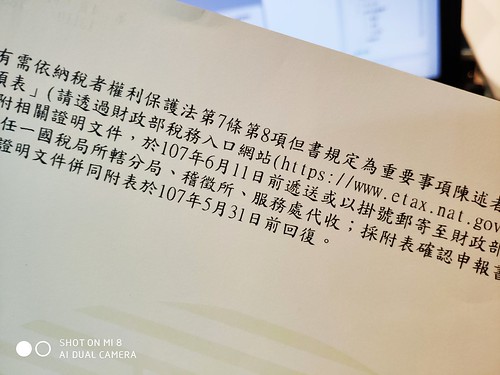 有需依納稅者權利保護法第7條第8項但書規定為重要事項陳述者
項表」(請透過財政部稅務入口網站(https://www.etax.nat.gov
附相關證明文件，於107年6月11日前遞送或以掛號郵寄至財政部
任一國稅局所轄分局、稽徵所、服務處代收；採附表確認申報書
證明文件併同附表於107年5月31日前回復。
SHOT ON MI 8
AI DUAL CAMERA